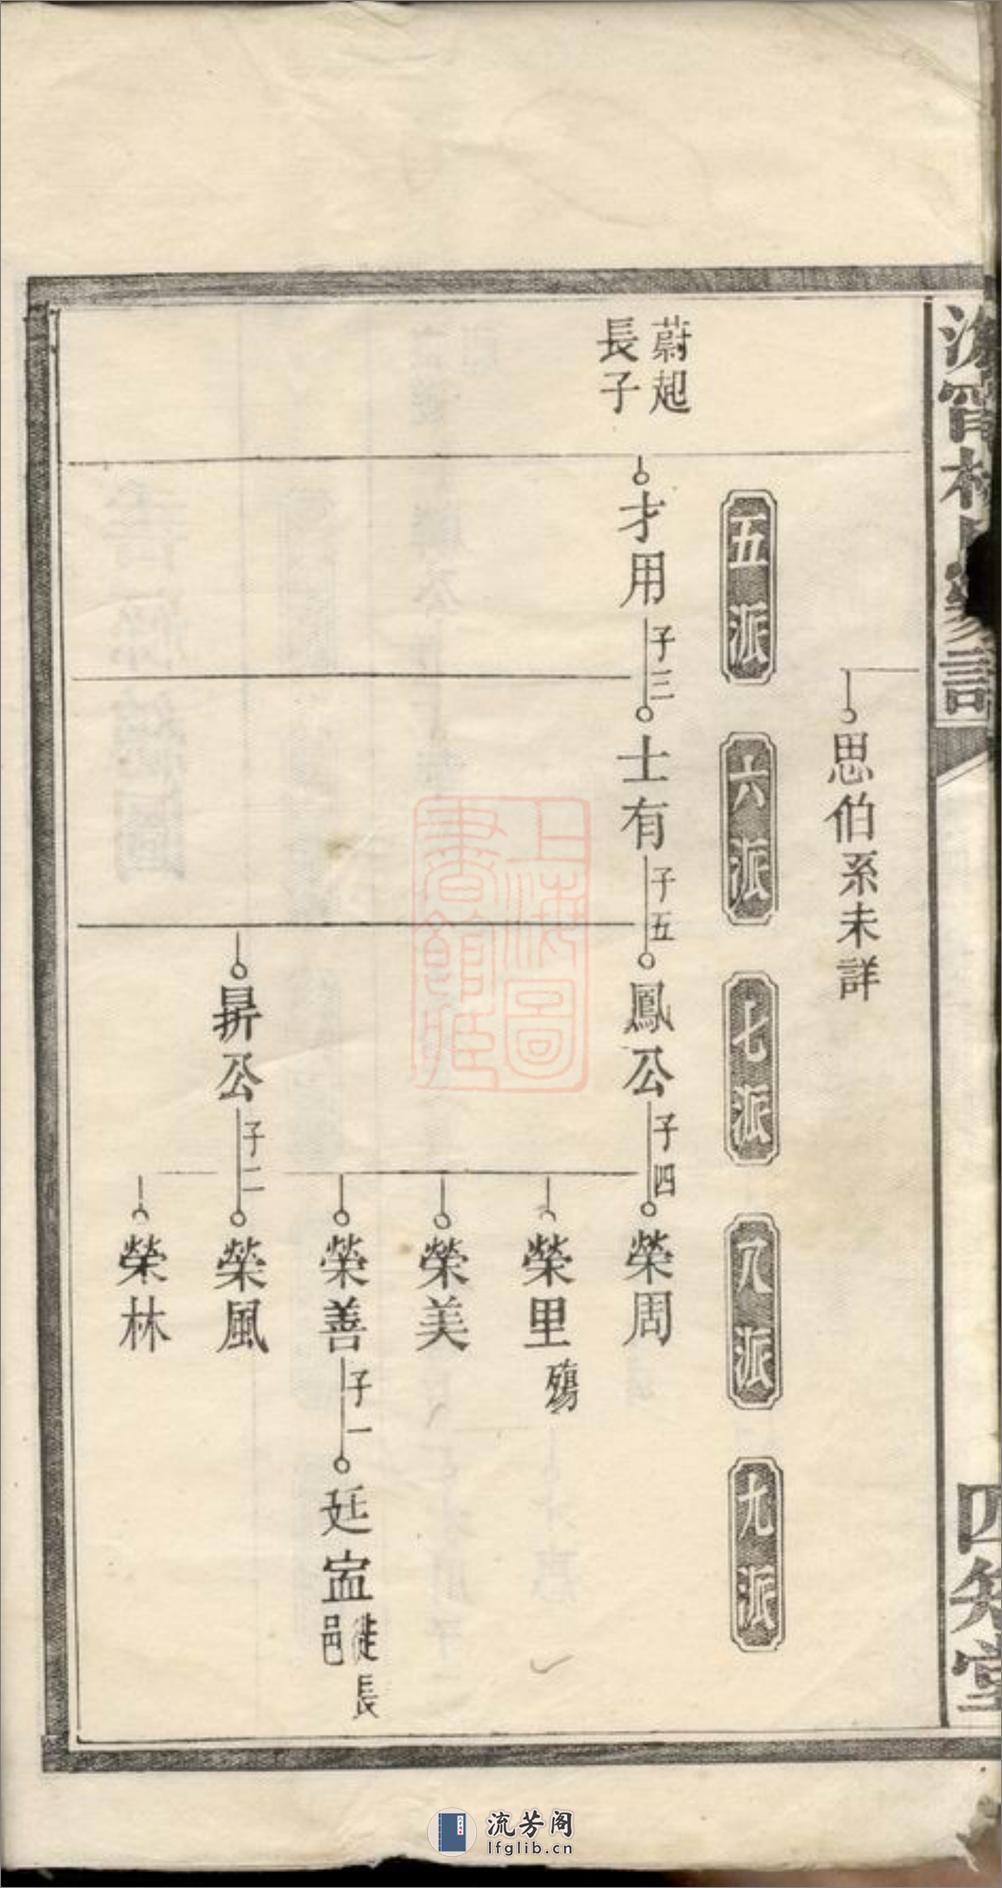 思伯系未詳
五派
六派
七派
八派
九派
蔚起
長子
才用
子三
士有
子五
鳳公
子四
榮周
榮里
殤
榮美
榮善
子一
廷寍
徙長
邑
昇公
子二
榮風
榮林
四知堂
上海圖
書館藏
流芳阁
lfglib.cn